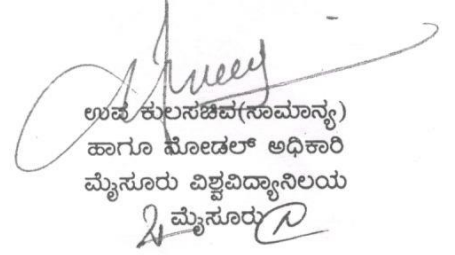 ಉಪ ಕುಲಸಚಿವ(ಸಾಮಾನ್ಯ)
ಹಾಗೂ ನೋಡಲ್ ಅಧಿಕಾರಿ
ಮೈಸೂರು ವಿಶ್ವವಿದ್ಯಾನಿಲಯ
ಮೈಸೂರು